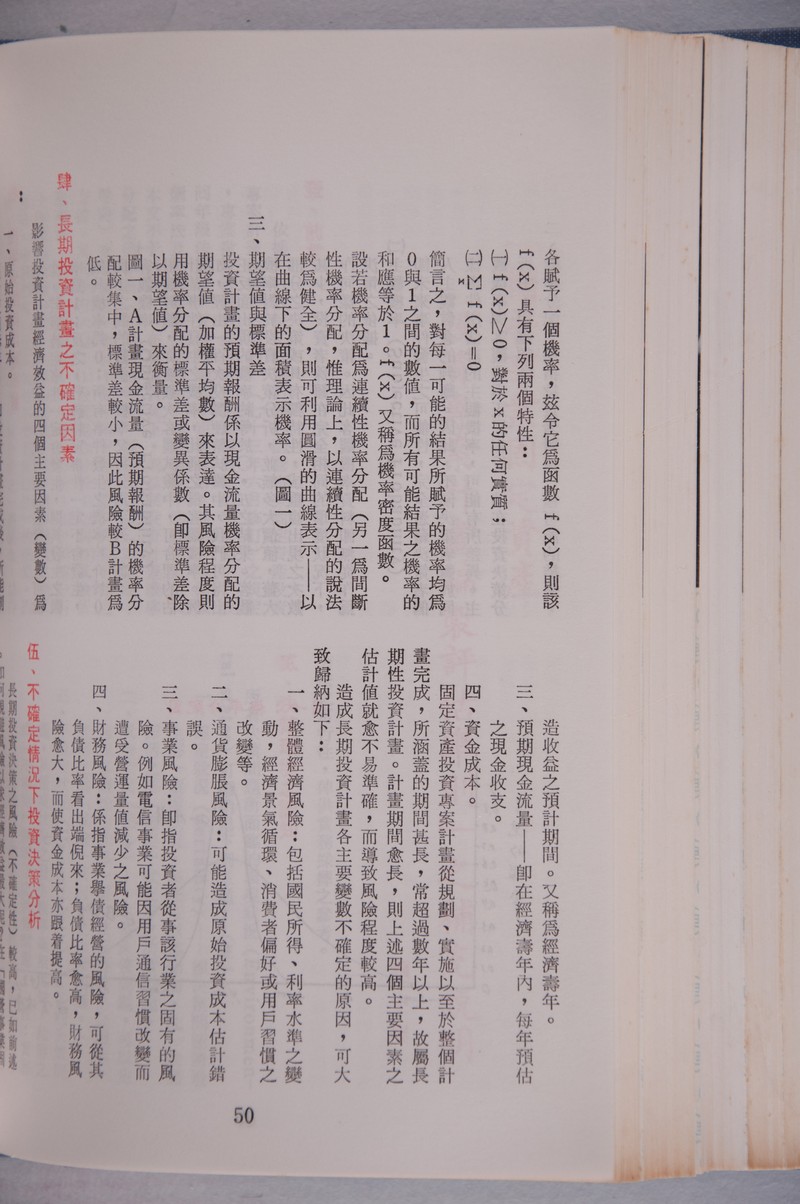 各賦予一個機率，玆令它爲函數 f（x），則該
f（x）具有下列兩個特性：
㈠f（x）≥0，對於x的任何實質；
㈡Σf（x）=0
x
簡言之，對每一可能的結果所賦予的機率均爲
0與1之間的數値，而所有可能結果之機率的
和應等於1。f（x）又稱爲機率密度函數。
設若機率分配爲連續性機率分配（另一爲間斷
性機率分配，惟理論上，以連續性分配的說法
較爲健全），則可利用圓滑的曲線表示——以
在曲線下的面積表示機率。（圖一）
三、期望値與標準差
投資計畫的預期報酬係以現金流量機率分配的
期望値（加權平均數）來表達。其風險程度則
用機率分配的標準差或變異係數（卽標準差、除
以期望値）來衡量。
圖一、A計畫現金流量（預期報酬）的機率分
配較集中，標準差較小，因此風險較B計畫爲
低。
肆、長期投資計畫之不確定因素
影響投資計畫經濟效益的四個主要因素（變數）爲
：
一、原始投資成本。
造收益之預計期間。又稱爲經濟壽年。
三、預期現金流量——卽在經濟壽年內，每年預估
之現金收支。
四、資金成本。
固定資產投資專案計畫從規劃、實施以至於整個計
畫完成，所涵蓋的期間甚長，常超過數年以上，故屬長
期性投資計畫。計畫期間愈長，則上述四個主要因素之
估計値就愈不易準確，而導致風險程度較高。
造成長期投資計畫各主要變數不確定的原因，可大
致歸納如下：
一、整體經濟風險：包括國民所得、利率水準之變
動，經濟景氣循環、消費者偏好或用戶習慣之
改變等。
二、通貨膨脹風險：可能造成原始投資成本估計錯
誤。
三、事業風險：卽指投資者從事該行業之固有的風
險。例如電信事業可能因用戶通信習慣改變而
遭受營運量値減少之風險。
四、財務風險：係指事業擧債經營的風險，可從其
負債比率看出端倪來；負債比率愈高，財務風
險愈大，而使資金成本亦跟着提高。
伍、不確定情況下投資決策分析
長期投資決策之風險（不確定性）較高，已如前述
50